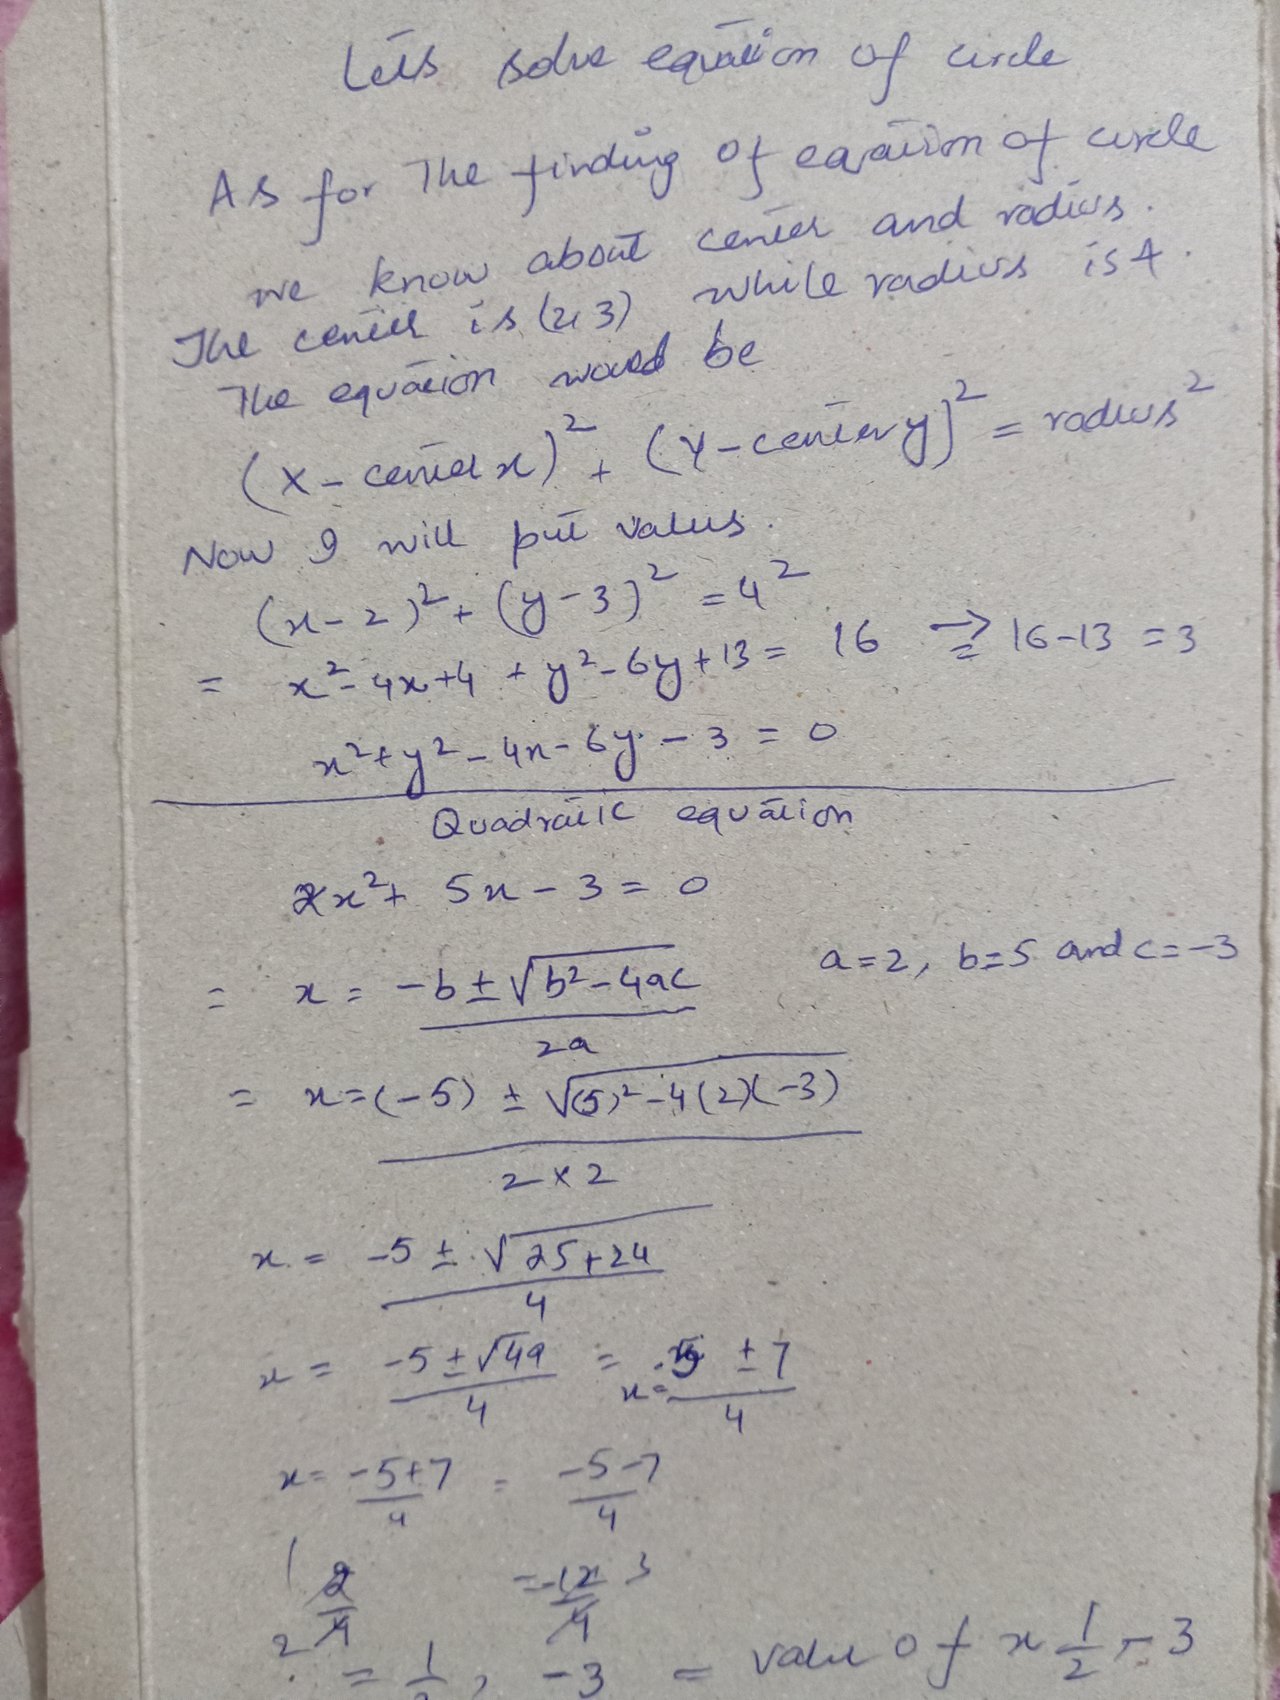 Lets solve equation of circle
As for The finding of eqation of circle
we know about center and radius.
The center is (2,3) while radius is 4.
The equation would be
(x - center x)² + (y - center y)² = radius²
Now I will put values.
(x-2)² + (y-3)² = 4²
= x²-4x+4 + y²-6y+13 = 16 → 16-13 = 3
x²+y²-4x-6y-3 = 0
Quadratic equation
2x² + 5x - 3 = 0
a=2, b=5 and c=-3
= x = -b ± √b²-4ac
2a
= x = (-5) ± √(5)²-4(2)(-3)
2 × 2
x = -5 ± √25+24
4
x = -5 ± √49 = x = -5 ± 7
4 4
x = -5+7 = -5-7
4 4
1 2 = -12 3
2 4 4
= 1/2, -3 = value of x 1/2, -3